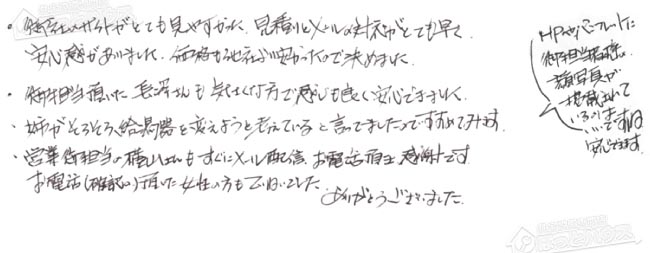 ・御社のサイトがとても見やすかった。見積りとメールの対応がとても早く
安心感がありました。価格も他社より安かったので決めました。
・御担当頂いた毛澤さんも気さくな方で感じも良く安心できました。
・姉がそろそろ給湯器を変えようと考えていると言ってましたのですすめてみます。
・営業御担当の横山さんもすぐにメール配信、お電話頂き感謝です。
お電話(確認の)頂いた女性の方もていねいでした。
ありがとうございました。
HPやパンフレットに
御担当者様の
顔写真が
掲載されて
いるのは
いいですね
安心できます。